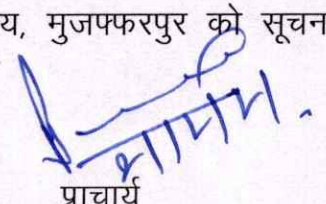 य, मुजफ्फरपुर को सूचन
प्राचार्य